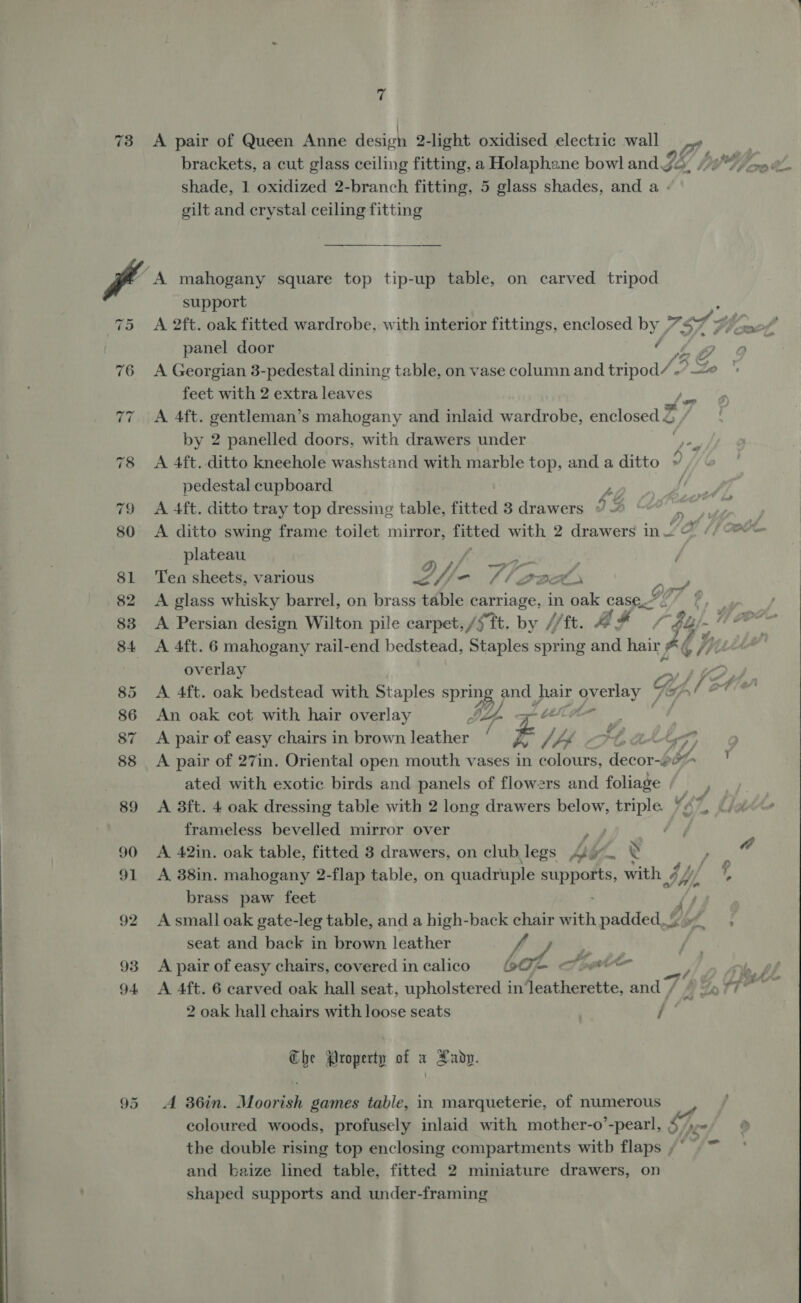 7
73 A pair of Queen Anne design 2-light oxidised electric wall
brackets, a cut glass ceiling fitting, a Holaphane bowl and
shade, 1 oxidized 2-branch fitting, 5 glass shades, and a
gilt and crystal ceiling fitting
A mahogany square top tip-up table, on carved tripod
support
75 A 2ft. oak fitted wardrobe, with interior fittings, enclosed by
panel door
76 A Georgian 3-pedestal dining table, on vase column and tripod
feet with 2 extra leaves
77 A 4ft. gentleman's mahogany and inlaid wardrobe, enclosed
by 2 panelled doors, with drawers under
78 A 4ft. ditto kneehole washstand with marble top, and a ditto
pedestal cupboard
79 A 4ft. ditto tray top dressing table, fitted 3 drawers
80 A ditto swing frame toilet mirror, fitted with 2 drawers in
plateau
81 Ten sheets, various
82 A glass whisky barrel, on brass table carriage, in oak case
83 A Persian design Wilton pile carpet, ft. by ft.
84 A 4ft. 6 mahogany rail-end bedstead, Staples spring and hair
overlay
85 A 4ft. oak bedstead with Staples spring and hair overlay
86 An oak cot with hair overlay
87 A pair of easy chairs in brown leather
88 A pair of 27in. Oriental open mouth vases in colours, decor-
ated with exotic birds and panels of flowers and foliage
89 A 3ft. 4 oak dressing table with 2 long drawers below, triple
frameless bevelled mirror over
90 A 42in. oak table, fitted 3 drawers, on club legs
91 A 38in. mahogany 2-flap table, on quadruple supports, with
brass paw feet
92 A small oak gate-leg table, and a high-back chair with padded
seat and back in brown leather
93 A pair of easy chairs, covered in calico
94 A 4ft. 6 carved oak hall seat, upholstered in leatherette, and
2 oak hall chairs with loose seats
The Property of a Lady.
95 A 36in. Moorish games table, in marqueterie, of numerous
coloured woods, profusely inlaid with mother-o'-pearl,
the double rising top enclosing compartments with flaps
and baize lined table, fitted 2 miniature drawers, on
shaped supports and under-framing